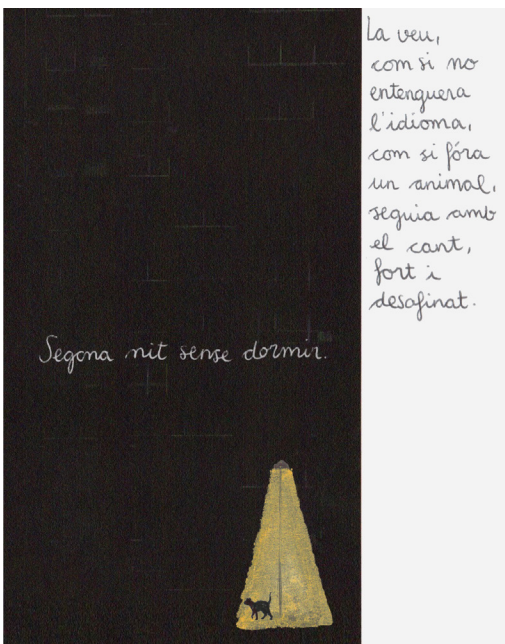 Segona nit sense dormir.
La veu,
com si no
entenguera
l'idioma,
com si fóra
un animal,
seguia amb
el cant,
fort i
desafinat.